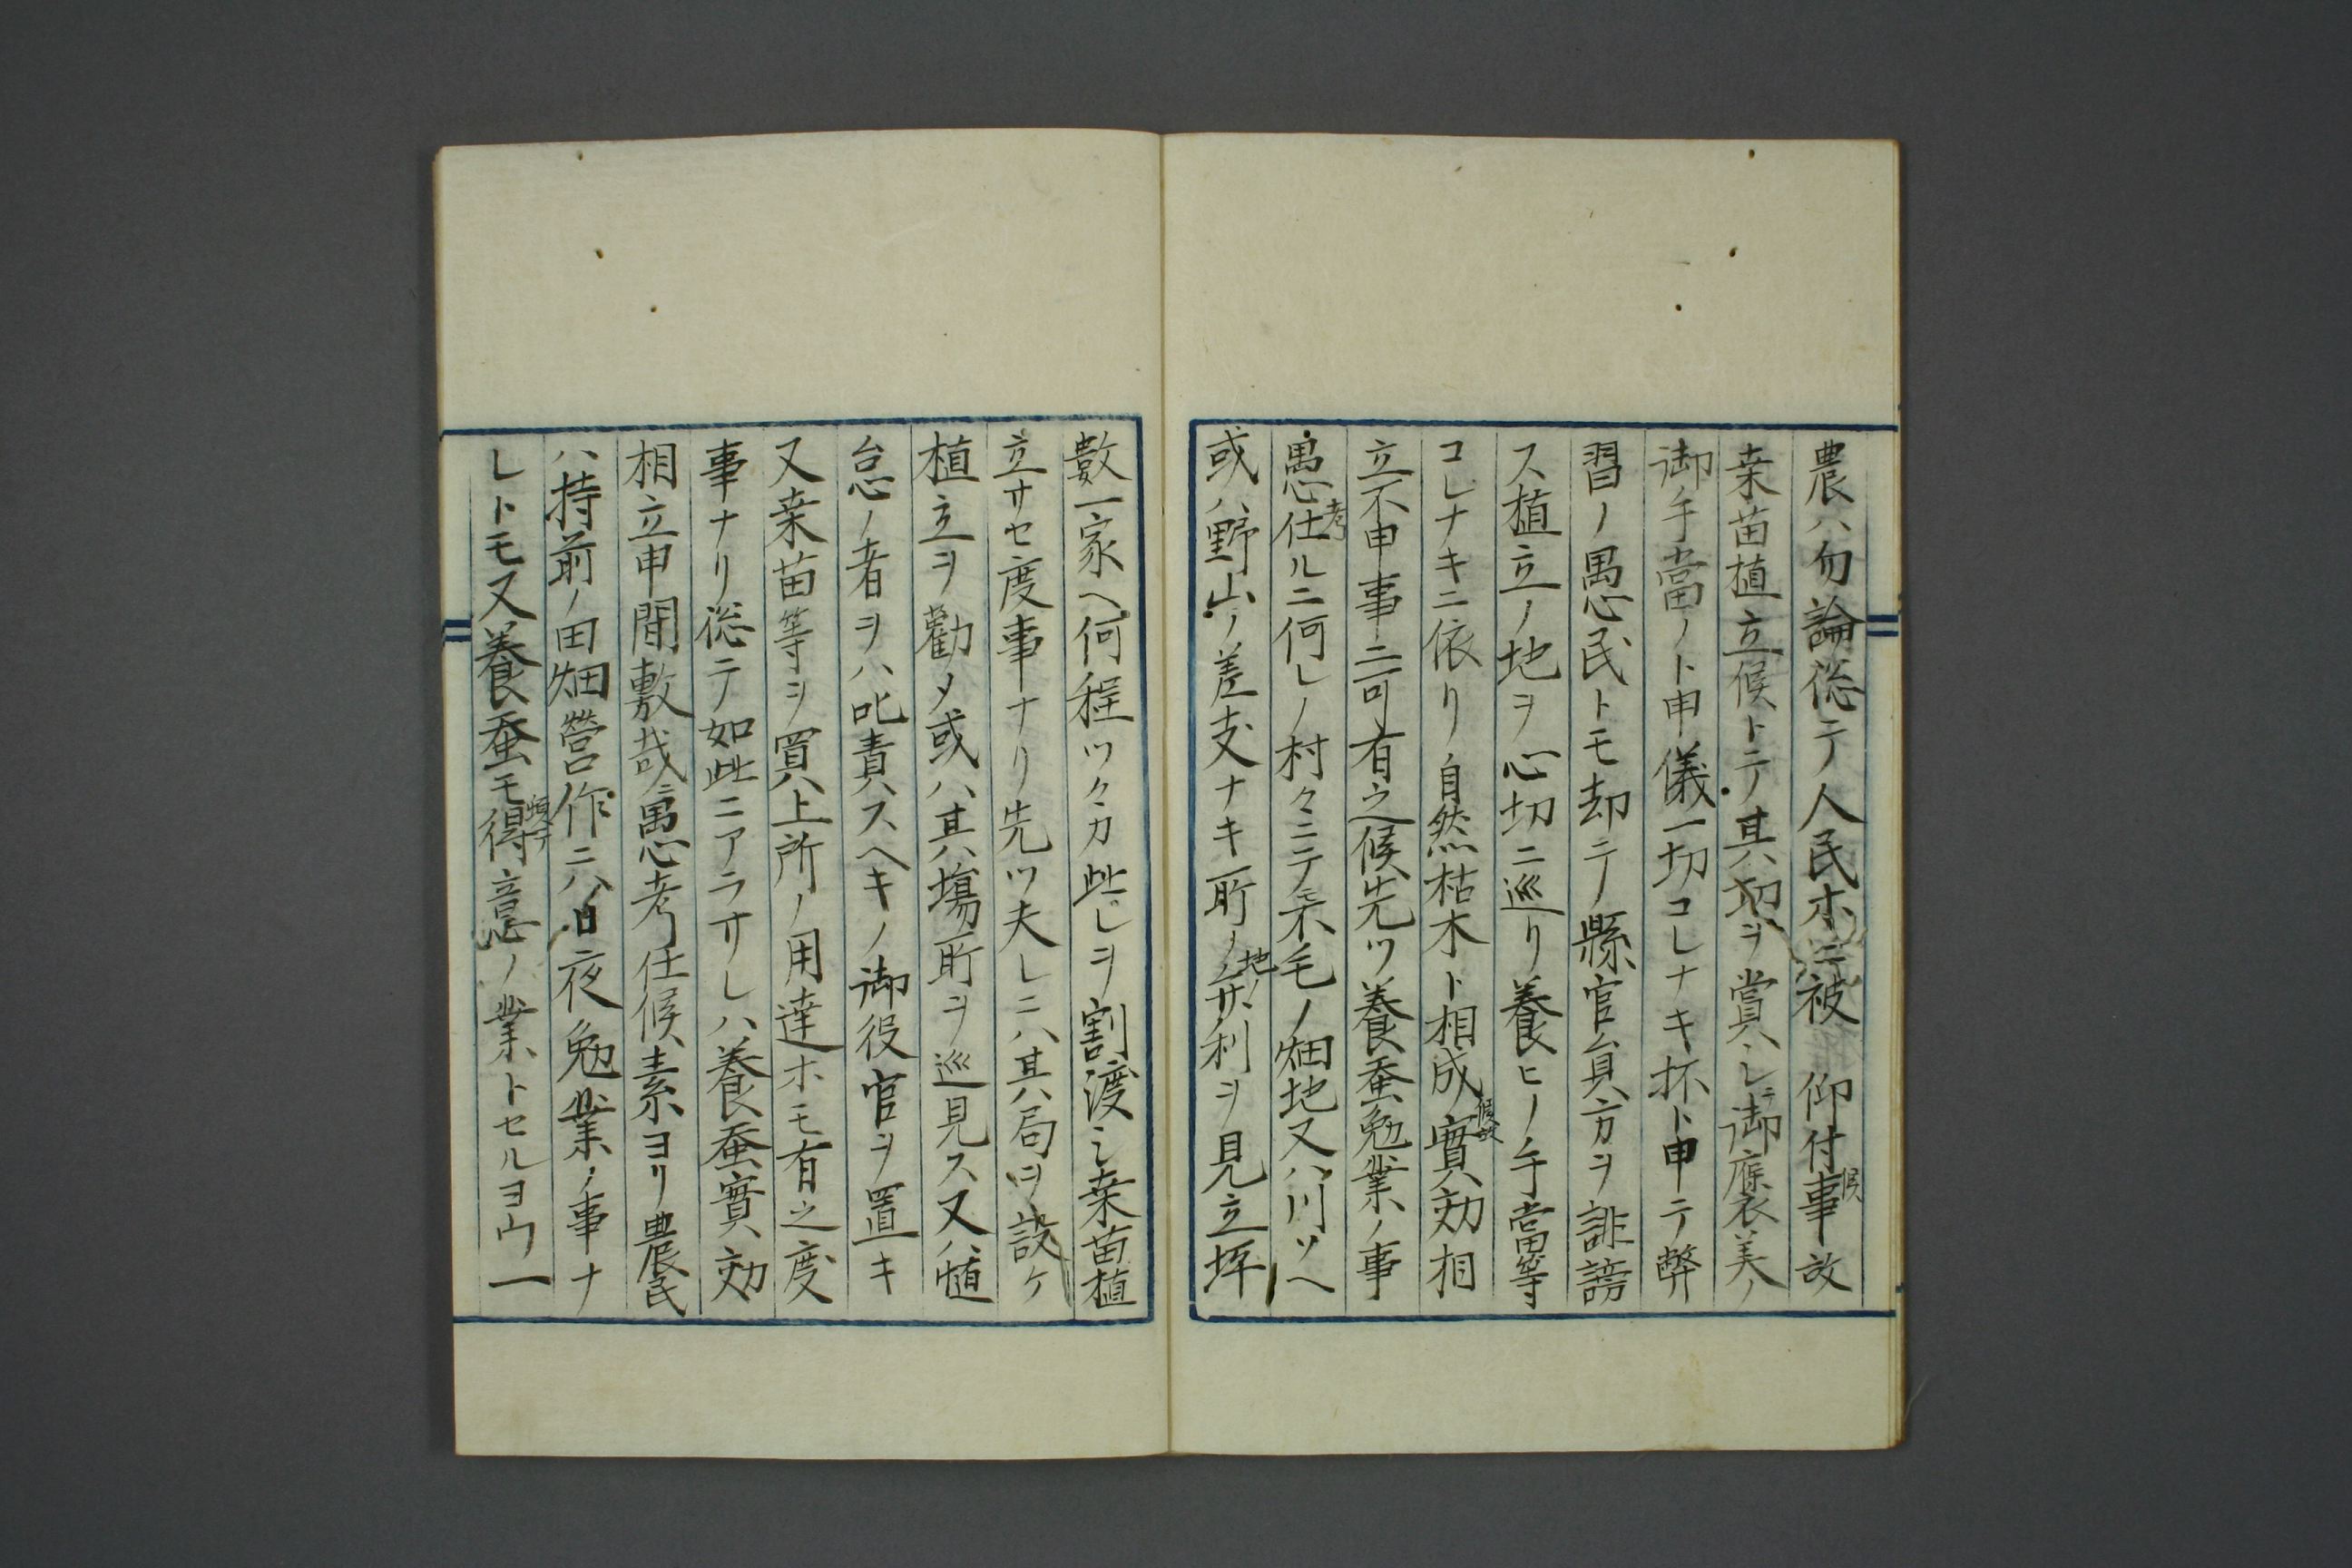 農ハ勿論総テ人民ホニ被　仰付候事故
桒苗植立候トテ其功ヲ賞シテ御褒美ノ
御手當ノト申儀一切コレナキ抔ト申テ弊
習ノ愚民トモ却テ縣官員方ヲ誹謗
ス植立ノ地ヲ心切ニ巡リ養ヒノ手當等
コレナキニ依リ自然枯木ト相成候故實効相
立不申事ニ可有之候先ツ養蚕勉業ノ事
愚考仕ルニ何レノ村々ニテモ不毛ノ畑地又ハ川ツヘ
或ハ野山ノ差支ナキ所ノ地ノ利ヲ見立坪
數一家ヘ何程ツクカ些レヲ割渡シ桒苗植
立サセ度事ナリ先ツ夫レニハ其局ヲ設ケ
植立ヲ勸メ或ハ其塲所ヲ巡見ス又植
怠ノ者ヲハ叱責スヘキノ御役官ヲ置キ
又桒苗等ヲ買上所ノ用達ホモ有之度
事ナリ総テ如此ニアラサレハ養蚕實効
相立申間敷哉ニ愚考仕候素ヨリ農民
ハ持前ノ田畑營作ニハ日夜勉業ノ事ナ
レトモ又養蚕モ得意ノ業トセルヨウ一